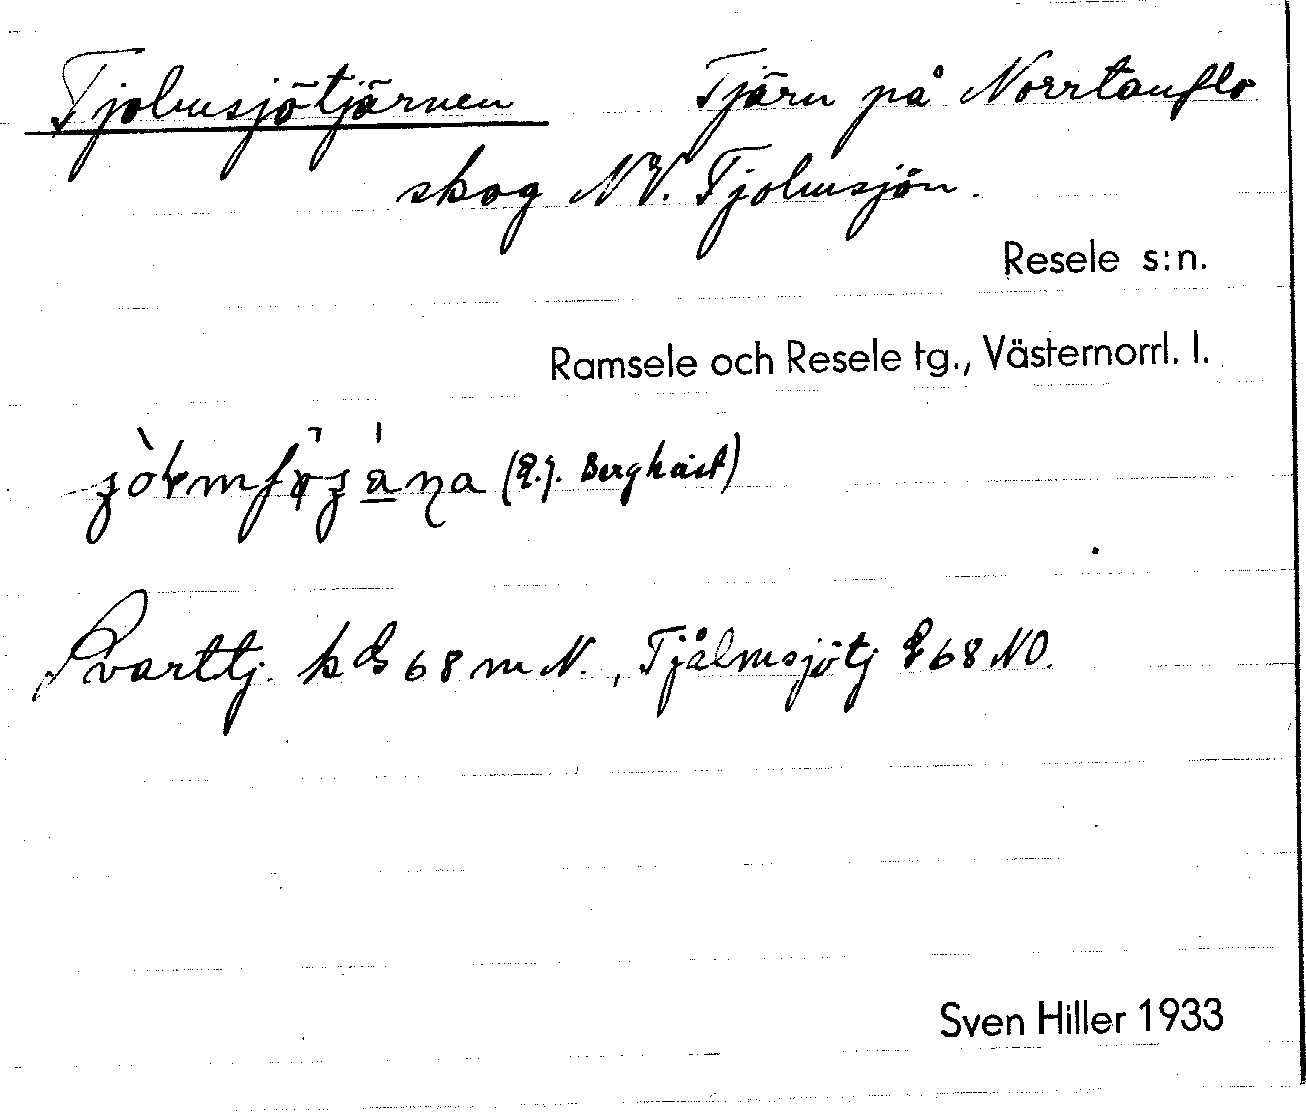 Tjolmsjötjärnen Tjärn på Norrtanflo
skog NV. Tjolmsjön.
Resele s:n.
Ramsele och Resele tg., Västernorrl. l.
(E.J. Berghäst)
Svarttj. k 68 m N., Tjålmsjötj E 68 NO.
Sven Hiller 1933